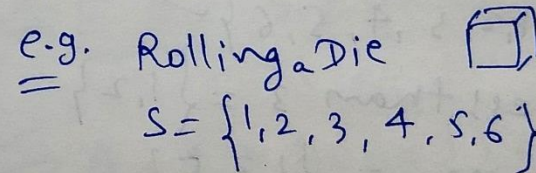 e.g. Rolling a Die
S = {1, 2, 3, 4, 5, 6}